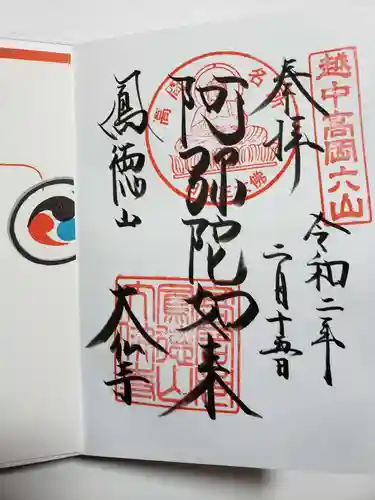 越中高岡六山
奉拝
令和二年
二月十五日
阿弥陀如来
鳳徳山
大仏寺